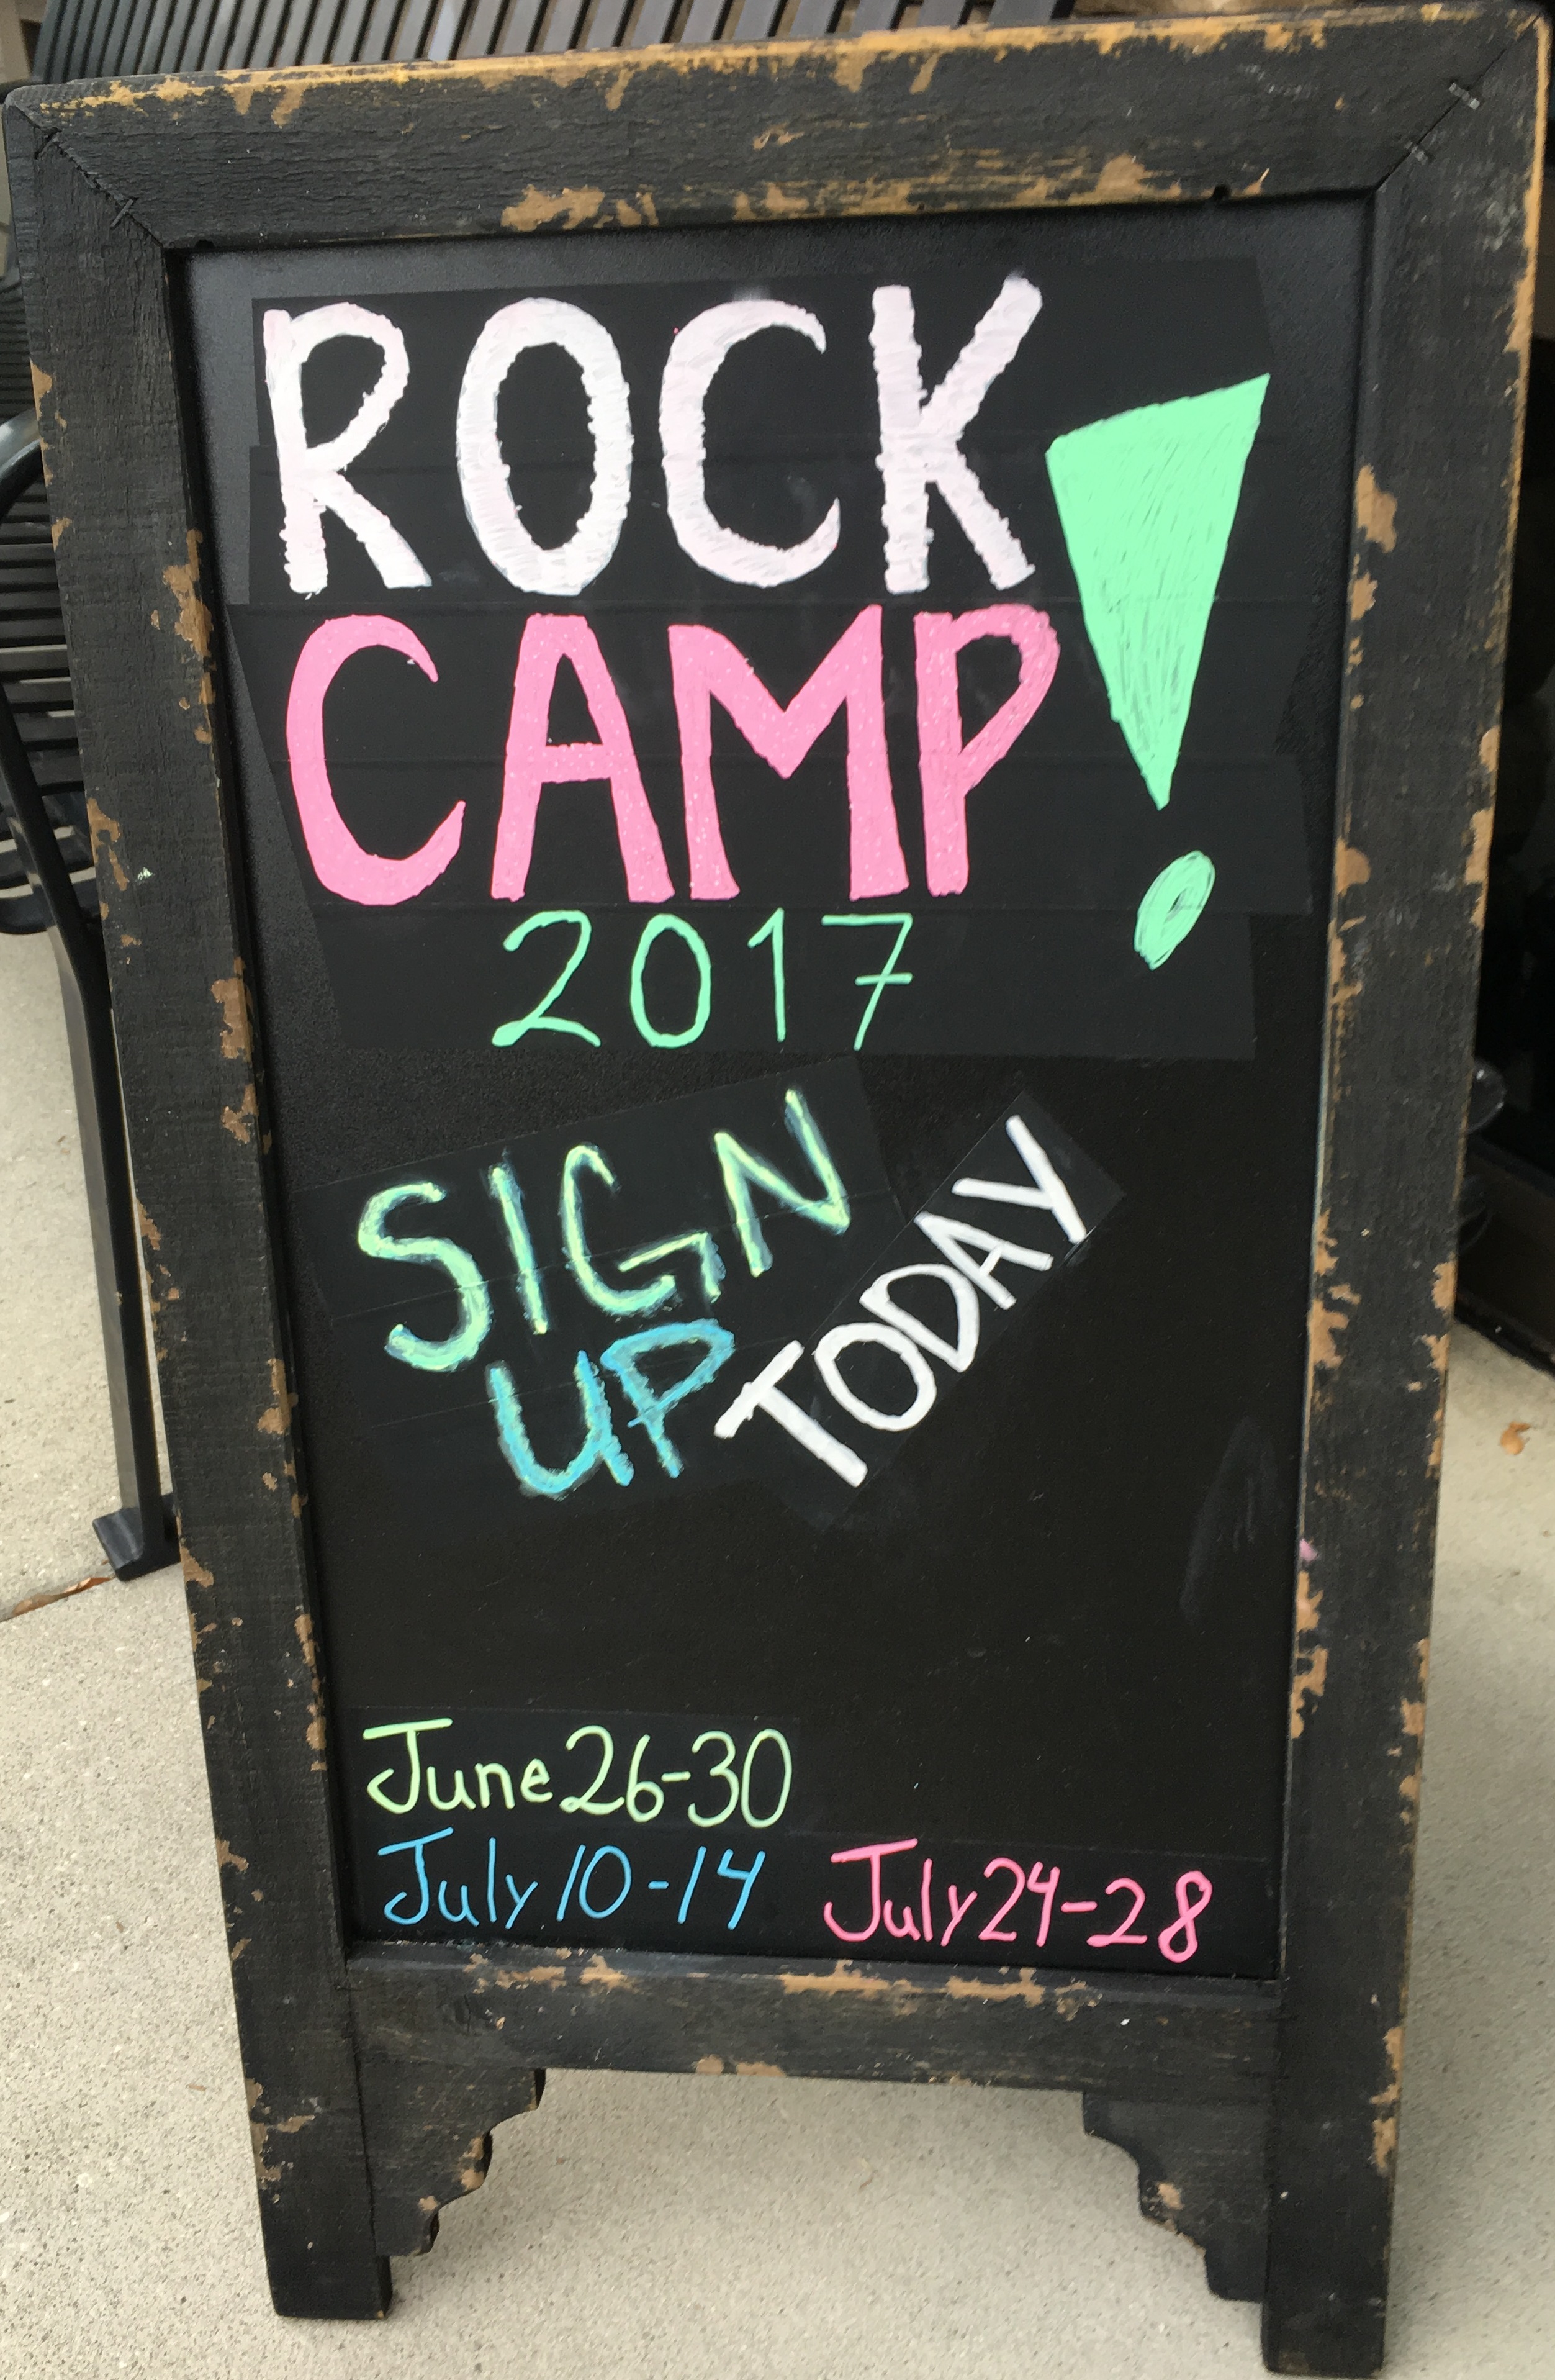 ROCK
CAMP!
2017
SIGN
UP TODAY
June 26-30
July 10-14 July 24-28